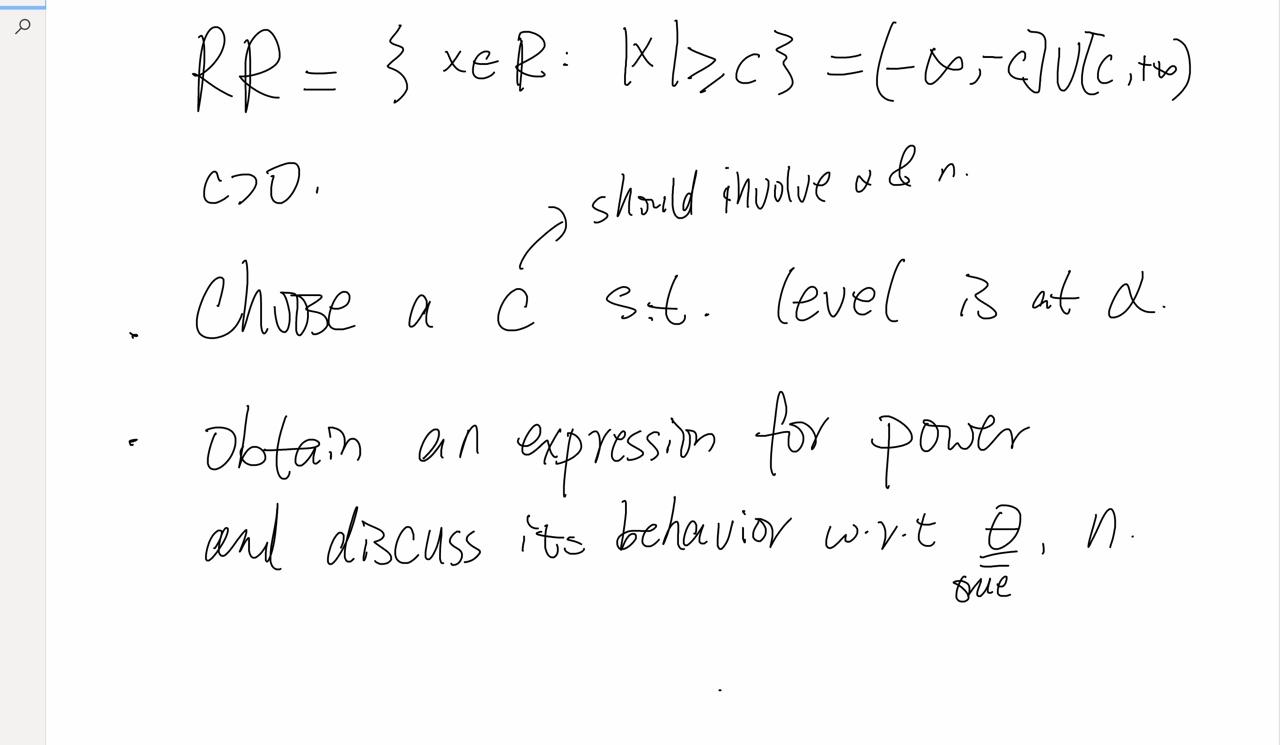 RR = { x∈R : |x| ≥ c } = (-∞, -c] ∪ [c, +∞)
c>0.
should involve α & n.
Choose a c s.t. level is at α.
Obtain an expression for power
and discuss its behavior w.r.t θ, n.